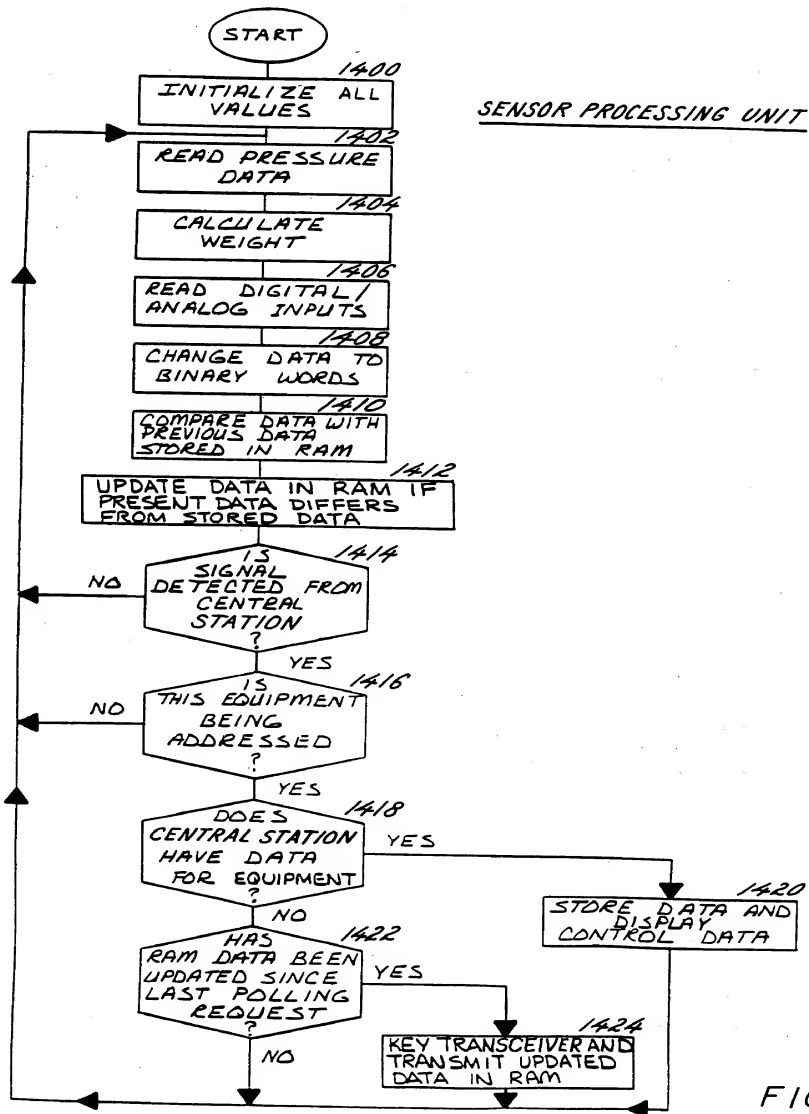 START
1400
INITIALIZE ALL
VALUES
SENSOR PROCESSING UNIT
1402
READ PRESSURE
DATA
1404
CALCULATE
WEIGHT
1406
READ DIGITAL/
ANALOG INPUTS
1408
CHANGE DATA TO
BINARY WORDS
1410
COMPARE DATA WITH
PREVIOUS DATA
STORED IN RAM
1412
UPDATE DATA IN RAM IF
PRESENT DATA DIFFERS
FROM STORED DATA
1414
IS
SIGNAL
DETECTED FROM
CENTRAL
STATION
?
NO
YES
1416
IS
THIS EQUIPMENT
BEING
ADDRESSED
?
NO
YES
1418
DOES
CENTRAL STATION
HAVE DATA
FOR EQUIPMENT
?
YES
NO
1420
STORE DATA AND
DISPLAY
CONTROL DATA
1422
HAS
RAM DATA BEEN
UPDATED SINCE
LAST POLLING
REQUEST
?
YES
NO
1424
KEY TRANSCEIVER AND
TRANSMIT UPDATED
DATA IN RAM